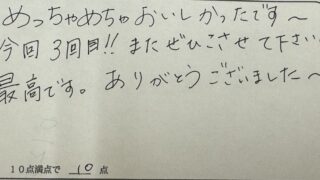 めっちゃめちゃおいしかったです〜
今回3回目!! またぜひこさせて下さい
最高です。ありがとうございました〜
10点満点で 10 点